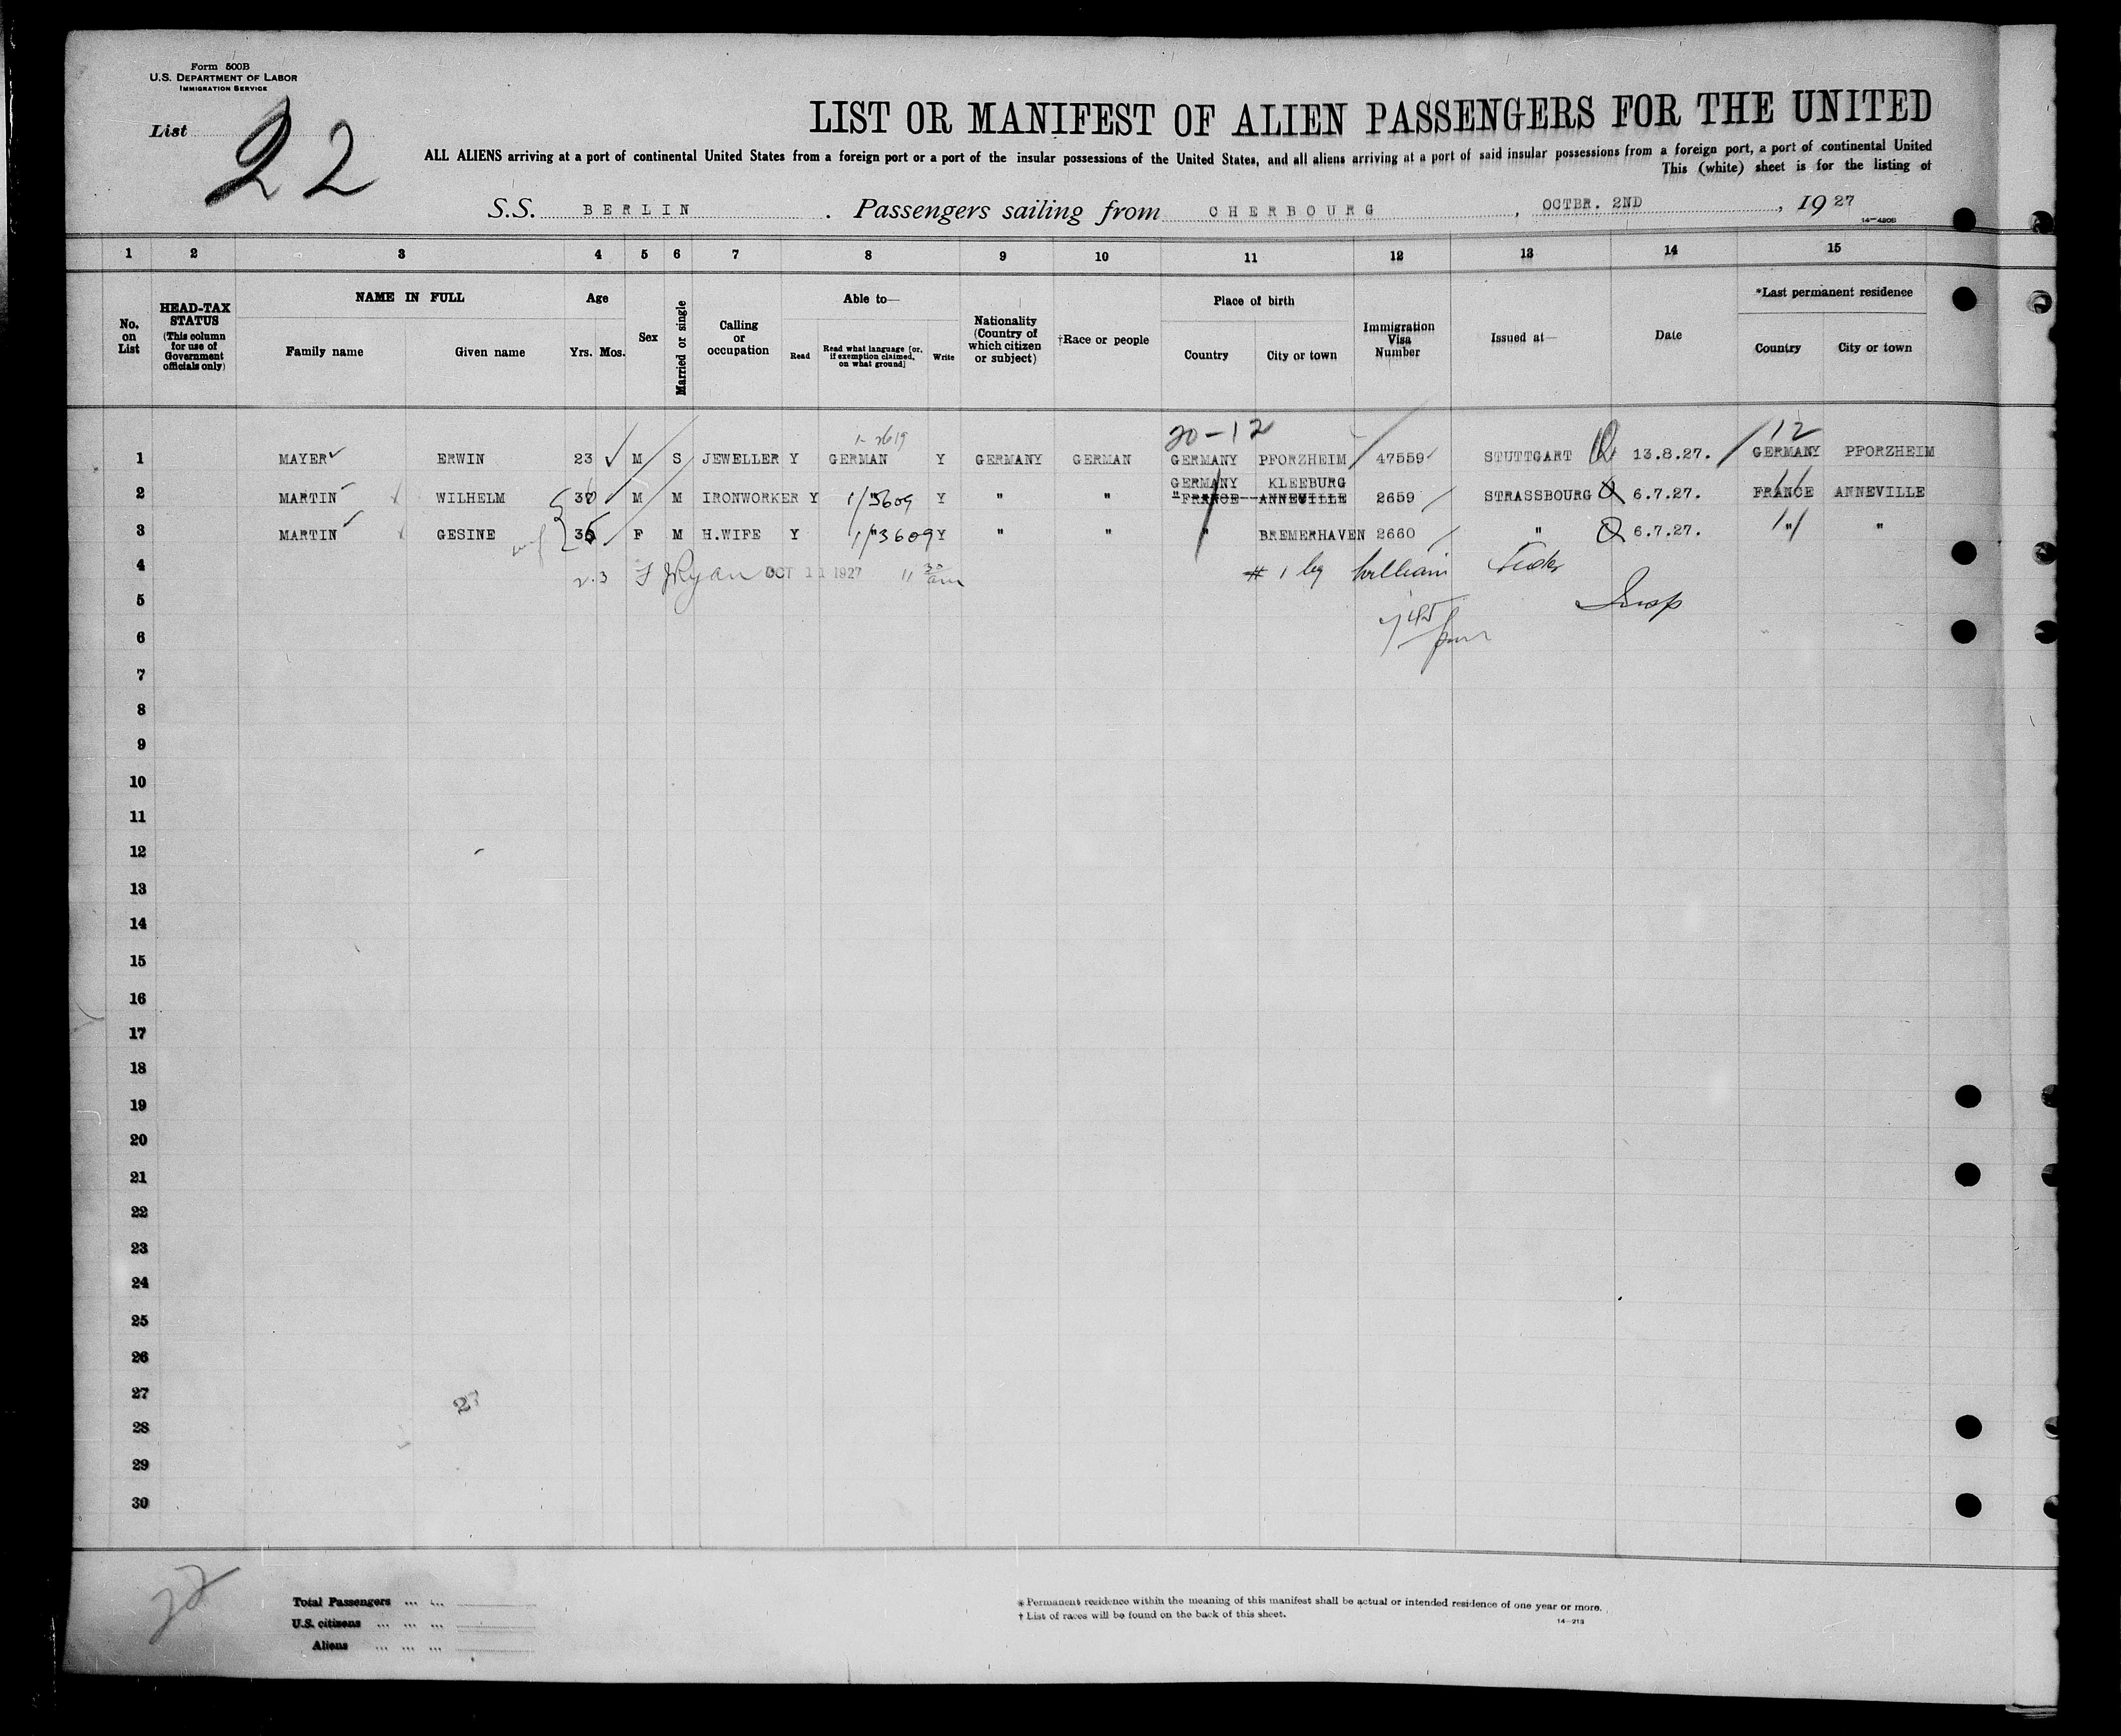 Form 500B
U.S. DEPARTMENT OF LABOR
IMMIGRATION SERVICE
List 22
LIST OR MANIFEST OF ALIEN PASSENGERS FOR THE UNITED
ALL ALIENS arriving at a port of continental United States from a foreign port or a port of the insular possessions of the United States, and all aliens arriving at a port of said insular possessions from a foreign port, a port of continental United
This (white) sheet is for the listing of
S.S. BERLIN . Passengers sailing from CHERBOURG , OCTBR. 2ND , 19 27
1 2 3 4 5 6 7 8 9 10 11 12 13 14 15
No. on List
HEAD-TAX STATUS (This column for use of Government officials only)
NAME IN FULL
Family name Given name
Age
Yrs. Mos.
Sex
Married or single
Calling or occupation
Able to—
Read
Read what language [or, if exemption claimed, on what ground]
Write
Nationality (Country of which citizen or subject)
†Race or people
Place of birth
Country City or town
Immigration Visa Number
Issued at—
Date
*Last permanent residence
Country City or town
20-12 12
1 MAYER ERWIN 23 M S JEWELLER Y GERMAN Y GERMANY GERMAN GERMANY PFORZHEIM 47559 STUTTGART 13.8.27. GERMANY PFORZHEIM
GERMANY KLEEBURG
2 MARTIN WILHELM 30 M M IRONWORKER Y " 3609 Y " " " FRANCE--ANNEVILLE 2659 STRASSBOURG 6.7.27. FRANCE ANNEVILLE
3 MARTIN GESINE 35 F M H.WIFE Y " 3609 Y " " " BREMERHAVEN 2660 " 6.7.27. " "
4 2.3 F J Ryan OCT 11 1927 11 30 am # 1 by William
5 Insp
6 7 45 pm
7
8
9
10
11
12
13
14
15
16
17
18
19
20
21
22
23
24
25
26
27
28
29
30
22
Total Passengers ... ...
U.S. citizens ... ... ...
Aliens ... ... ...
* Permanent residence within the meaning of this manifest shall be actual or intended residence of one year or more.
† List of races will be found on the back of this sheet.
14—213